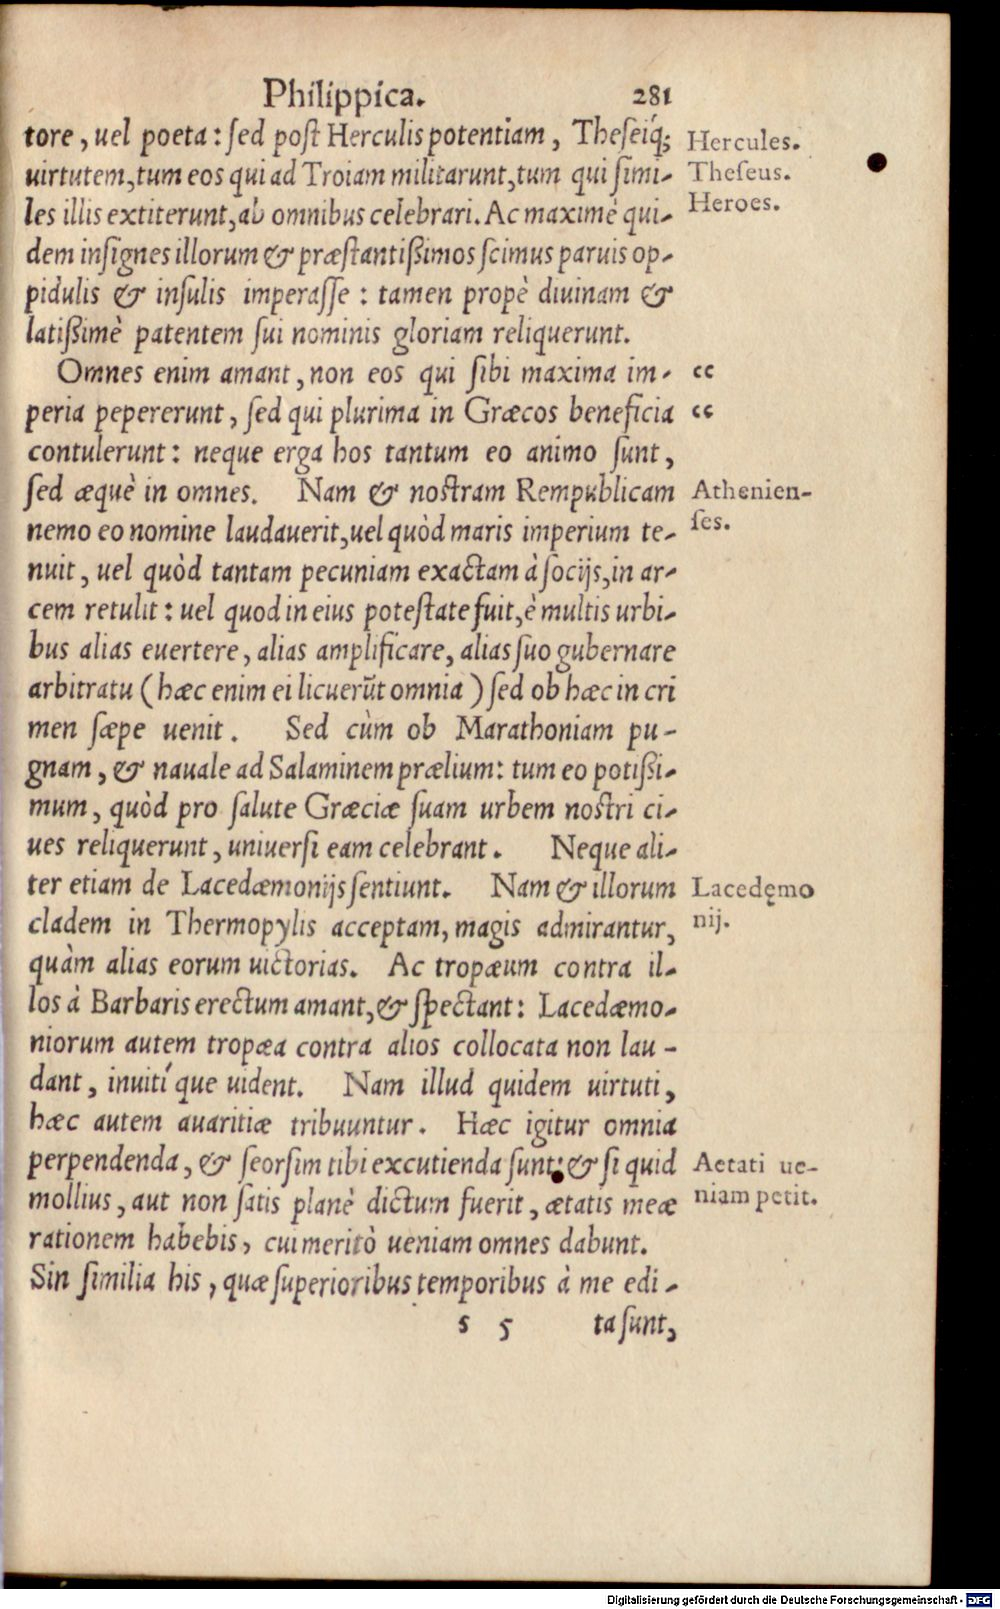 Philippica. 281
tore, uel poeta: ſed poſt Herculis potentiam, Theſeiq́;
uirtutem, tum eos qui ad Troiam militarunt, tum qui ſimi-
les illis extiterunt, ab omnibus celebrari. Ac maximè qui-
dem inſignes illorum & præſtantißimos ſcimus paruis op-
pidulis & inſulis imperaſſe: tamen propè diuinam &
latißimè patentem ſui nominis gloriam reliquerunt.
Hercules.
Theſeus.
Heroes.
Omnes enim amant, non eos qui ſibi maxima im- cc
peria pepererunt, ſed qui plurima in Græcos beneficia cc
contulerunt: neque erga hos tantum eo animo ſunt,
ſed æquè in omnes. Nam & noſtram Rempublicam
nemo eo nomine laudauerit, uel quòd maris imperium te-
nuit, uel quòd tantam pecuniam exactam à ſocijs, in ar-
cem retulit: uel quod in eius poteſtate fuit, è multis urbi-
bus alias euertere, alias amplificare, alias ſuo gubernare
arbitratu (hæc enim ei licuerũt omnia) ſed ob hæc in cri
men ſæpe uenit. Sed cùm ob Marathoniam pu-
gnam, & nauale ad Salaminem prælium: tum eo potißi-
mum, quòd pro ſalute Græciæ ſuam urbem noſtri ci-
ues reliquerunt, uniuerſi eam celebrant. Neque ali-
ter etiam de Lacedæmonijs ſentiunt. Nam & illorum
cladem in Thermopylis acceptam, magis admirantur,
quàm alias eorum uictorias. Ac tropæum contra il-
los à Barbaris erectum amant, & ſpectant: Lacedæmo-
niorum autem tropæa contra alios collocata non lau-
dant, inuitíque uident. Nam illud quidem uirtuti,
hæc autem auaritiæ tribuuntur. Hæc igitur omnia
perpendenda, & ſeorſim tibi excutienda ſunt: & ſi quid
mollius, aut non ſatis planè dictum fuerit, ætatis meæ
rationem habebis, cui meritò ueniam omnes dabunt.
Sin ſimilia his, quæ ſuperioribus temporibus à me edi-
Athenien-
ſes.
Lacedęmo
nij.
Aetati ue-
niam petit.
s 5 ta ſunt,
Digitalisierung gefördert durch die Deutsche Forschungsgemeinschaft - DFG